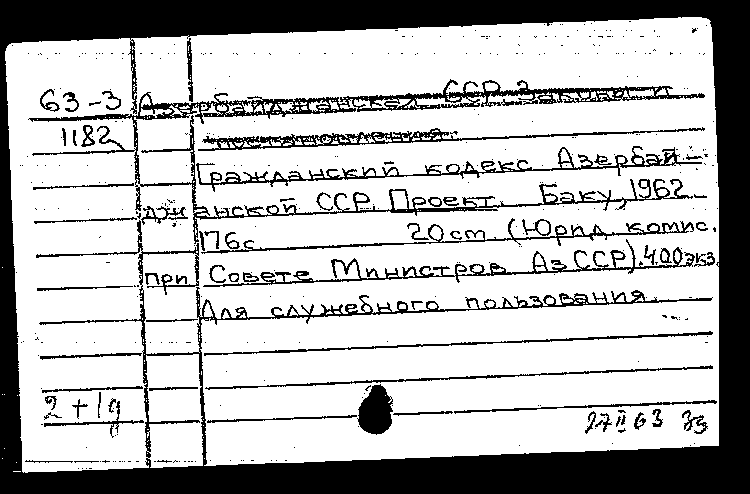 63-3 Азербайджанская ССР Законы и
1182 постановления.
Гражданский кодекс Азербай-
джанской ССР. Проект. Баку, 1962
176с. 20см (Юрид. комис.
при Совете Министров АзССР). 400экз.
Для служебного пользования.
2+1д
27 II 63